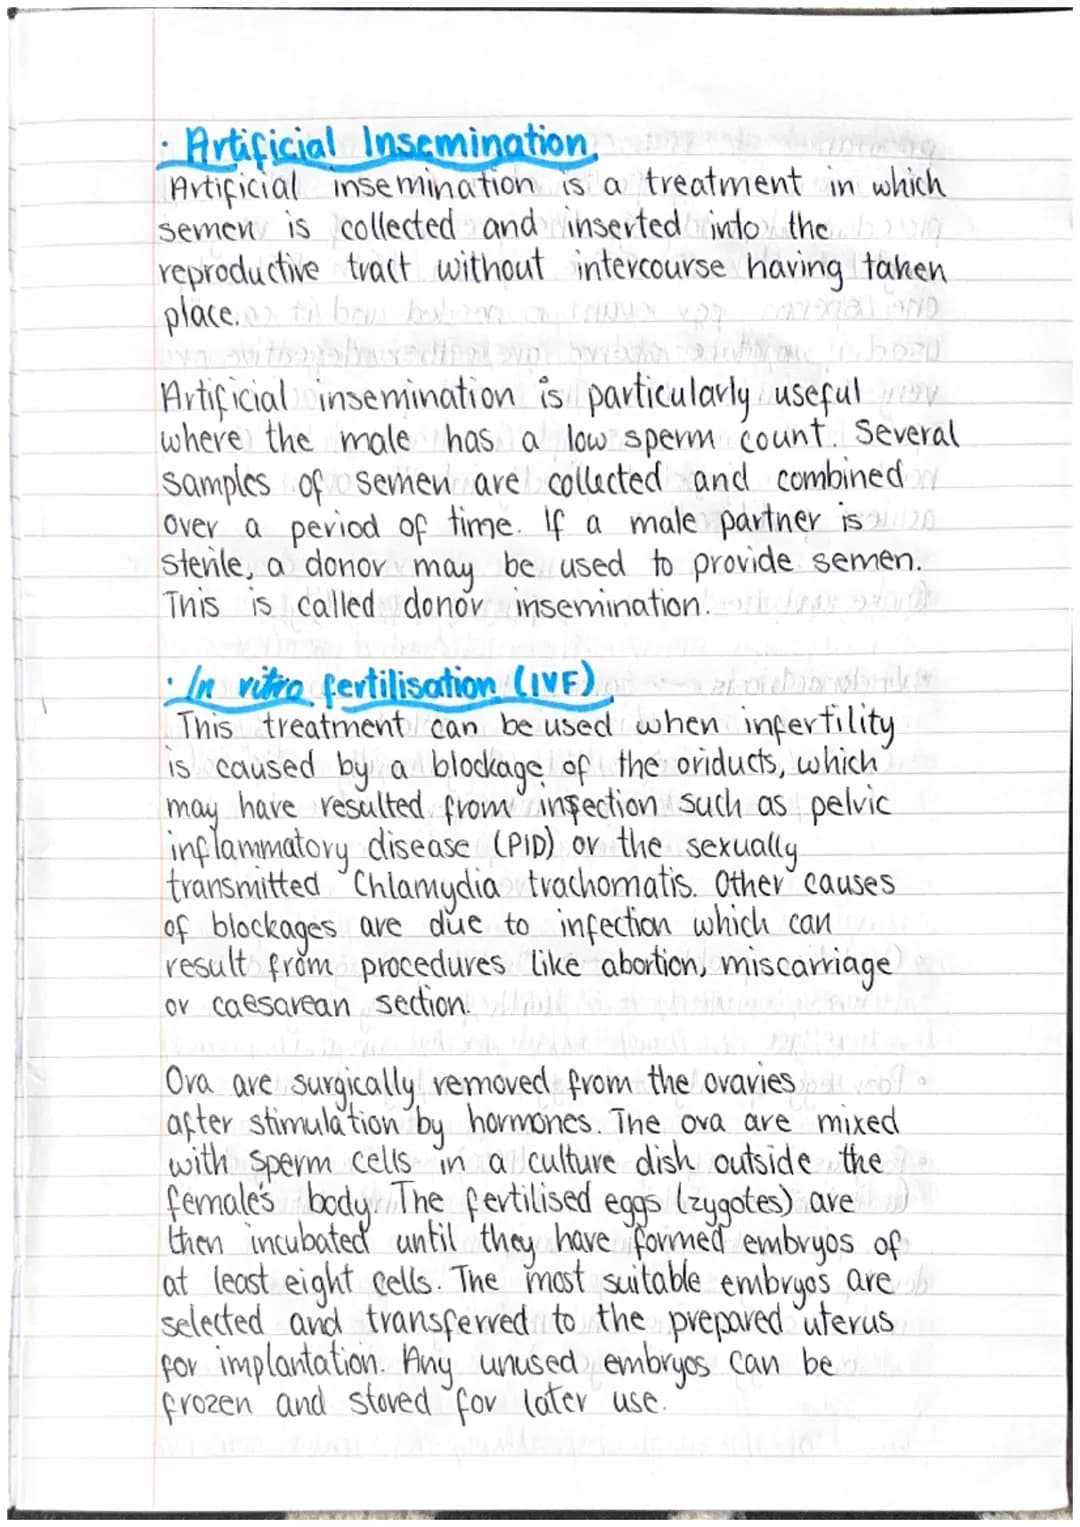 · Artificial Insemination.
Artificial insemination is a treatment in which
semen is collected and inserted into the
reproductive tract without intercourse having taken
place.
Artificial insemination is particularly useful
where the male has a low sperm count. Several
samples of semen are collected and combined
over a period of time. If a male partner is
sterile, a donor may be used to provide semen.
This is called donor insemination.
· In vitro fertilisation (IVF).
This treatment can be used when infertility
is caused by a blockage of the oriducts, which
may have resulted from infection such as pelvic
inflammatory disease (PID) or the sexually
transmitted Chlamydia trachomatis. Other causes
of blockages are due to infection which can
result from procedures like abortion, miscarriage
or caesarean section.
Ova are surgically removed from the ovaries
after stimulation by hormones. The ova are mixed
with sperm cells in a culture dish outside the
female's body. The fertilised eggs (zygotes) are
then incubated until they have formed embryos of
at least eight cells. The most suitable embryos are
selected and transferred to the prepared uterus
for implantation. Any unused embryos can be
frozen and stored for later use.